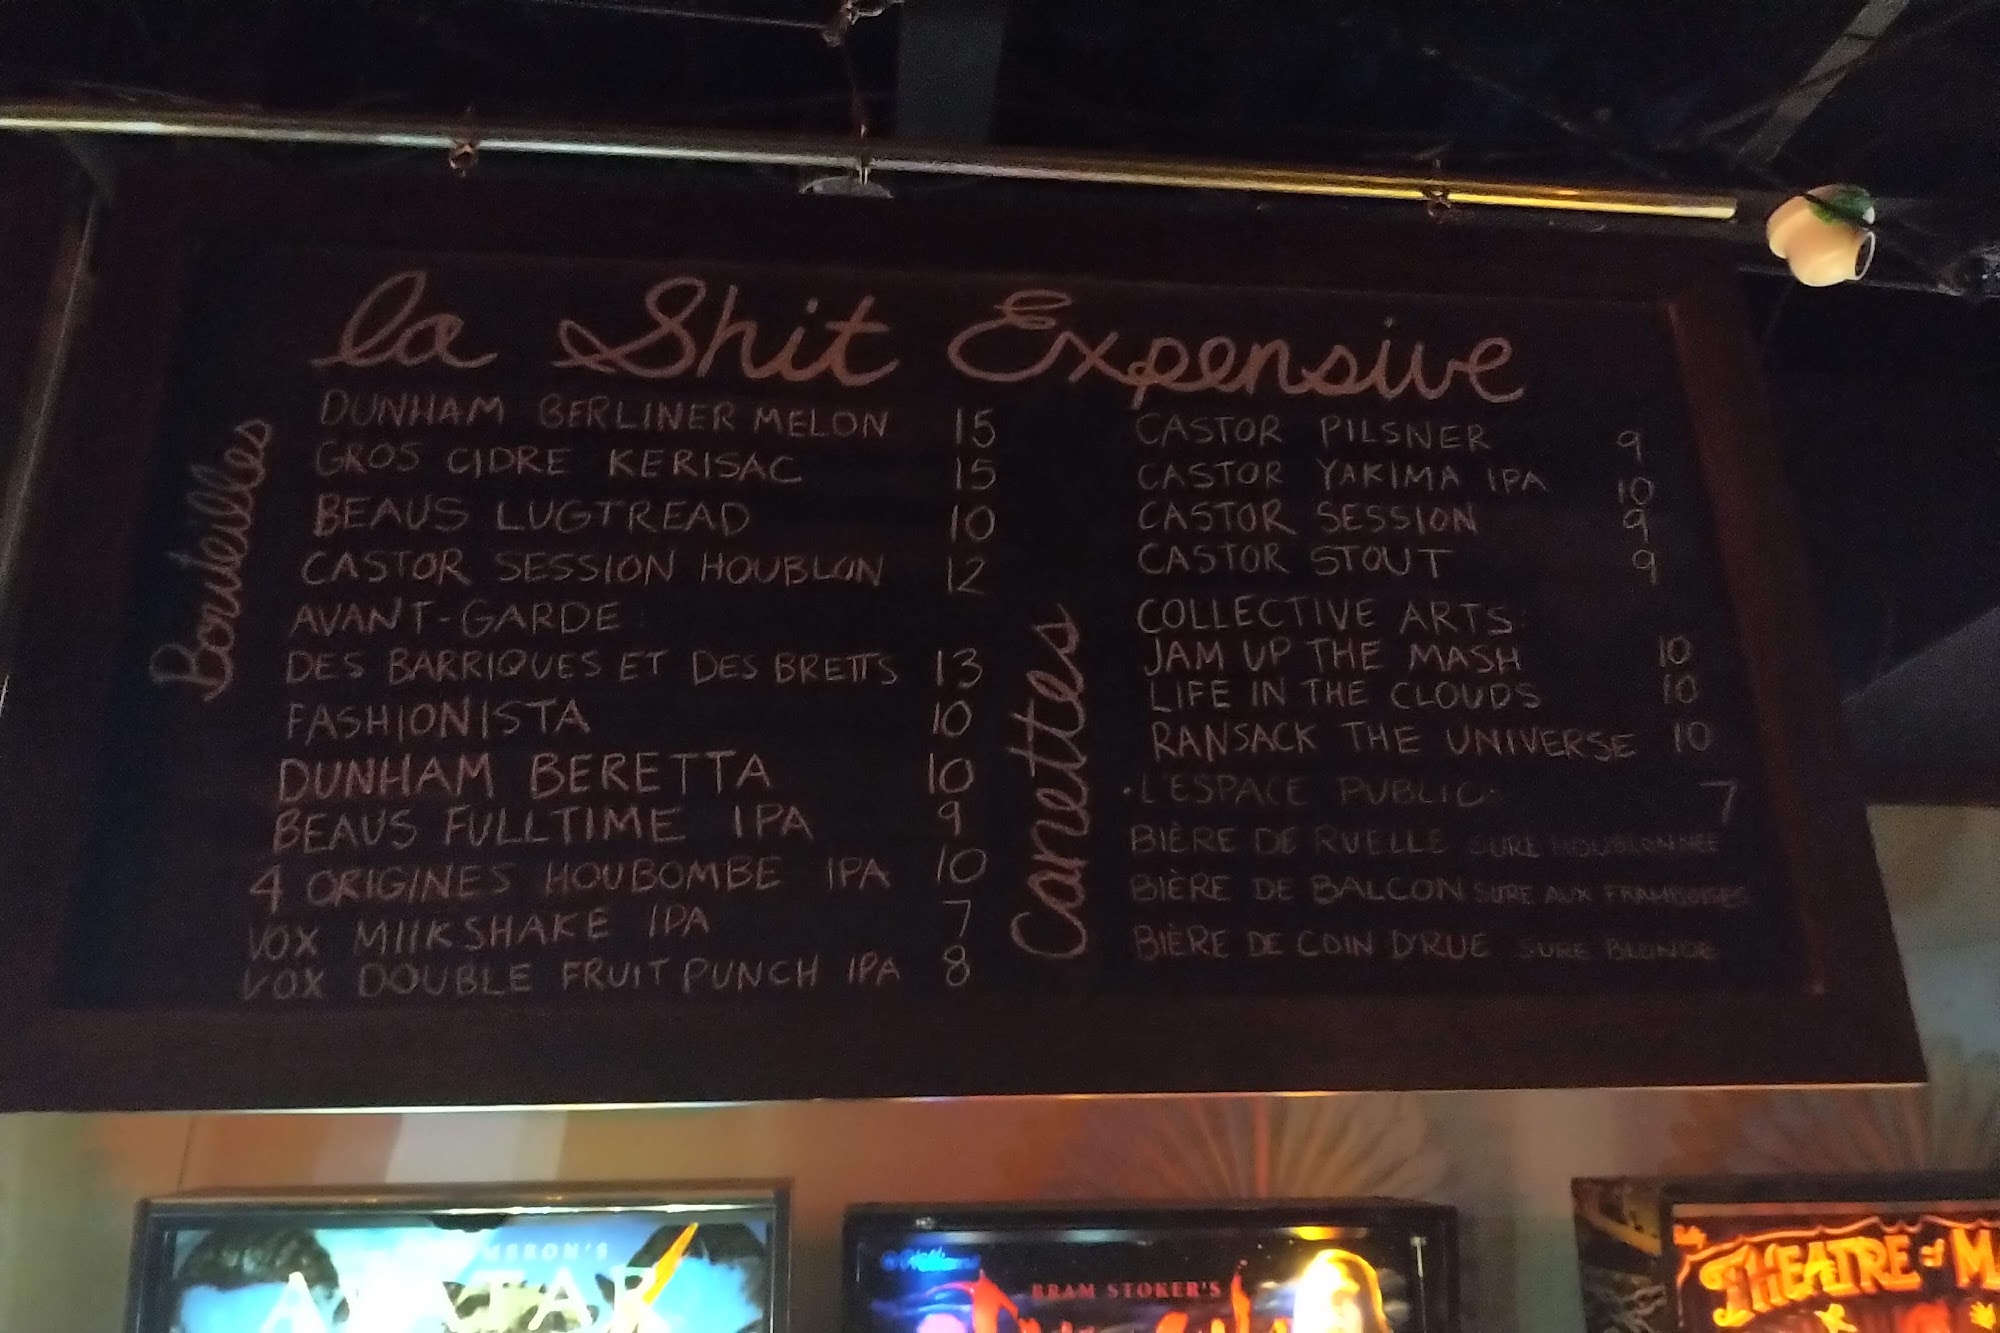 la Shit Expensive
Bouteilles
DUNHAM BERLINER MELON 15
GROS CIDRE KERISAC 15
BEAUS LUGTREAD 10
CASTOR SESSION HOUBLON 12
AVANT-GARDE:
DES BARRIQUES ET DES BRETTS 13
FASHIONISTA 10
DUNHAM BERETTA 10
BEAUS FULLTIME IPA 9
4 ORIGINES HOUBOMBE IPA 10
VOX MILKSHAKE IPA 7
VOX DOUBLE FRUIT PUNCH IPA 8
Canettes
CASTOR PILSNER 9
CASTOR YAKIMA IPA 10
CASTOR SESSION 9
CASTOR STOUT 9
COLLECTIVE ARTS:
JAM UP THE MASH 10
LIFE IN THE CLOUDS 10
RANSACK THE UNIVERSE 10
·L'ESPACE PUBLIC: 7
BIÈRE DE RUELLE SURE HOUBLONNÉE
BIÈRE DE BALCON SURE AUX FRAMBOISES
BIÈRE DE COIN D'RUE SURE BLONDE
AVATAR
BRAM STOKER'S
THEATRE of